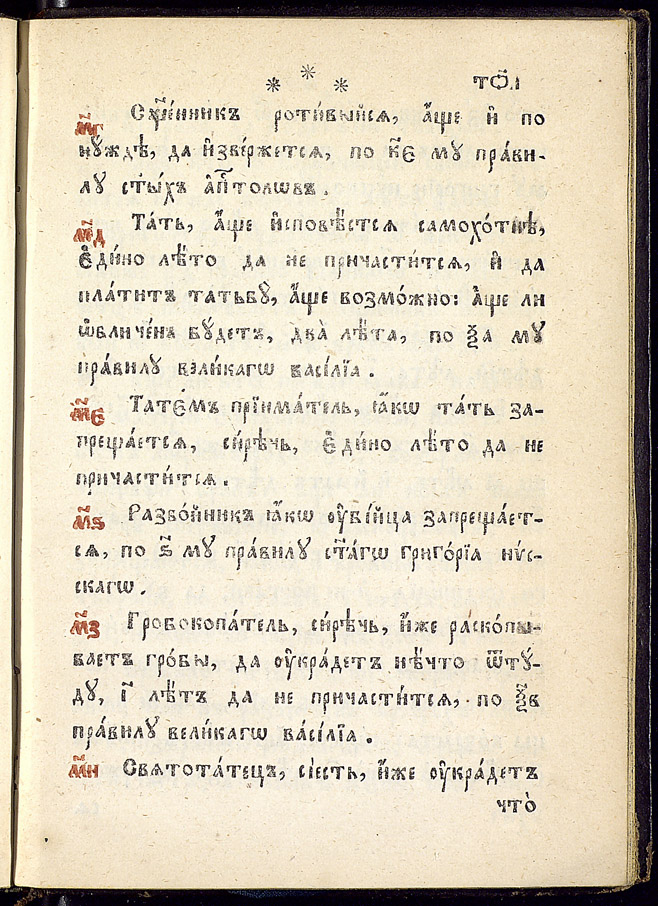 * * *
тѻ҃і
м҃г Сщ҃е́нникъ роти́выйсѧ, а҆́ще и҆ по
нꙋ́ждѣ, да и҆зве́ржетсѧ, по к҃е мꙋ пра́ви-
лꙋ ст҃ы́хъ а҆п҃толѡвъ.
м҃д Та́ть, а҆́ще и҆сповѣ́стсѧ самохо́тнѣ,
є҆ди́но лѣ́то да не причасти́тсѧ, и҆ да
плати́тъ татьбꙋ̀, а҆́ще возмо́жно: а҆́ще ли
ѡ҆бличе́нъ бꙋ́детъ, два̀ лѣ́та, по ѯ҃а мꙋ
пра́вилꙋ вели́кагѡ васі́лїа.
м҃е Татє́мъ прїима́тель, ꙗ҆́кѡ та́ть за-
преща́етсѧ, си́рѣчь, є҆ди́но лѣ́то да не
причасти́тсѧ.
м҃ѕ Разбо́йникъ ꙗ҆́кѡ ᲂу҆бі́йца запреща́ет-
сѧ, по є҃ мꙋ пра́вилꙋ ст҃а́гѡ григо́рїа нѵ́с-
скагѡ.
м҃з Гробокопа́тель, си́рѣчь, и҆́же раско́пы-
ваетъ гро́бы, да ᲂу҆кра́детъ нѣ́что ѿтꙋ́-
дꙋ, і҃ лѣ́тъ да не причасти́тсѧ, по ѯ҃в
пра́вилꙋ вели́кагѡ ва́сі́лїа.
м҃и Свѧтота́тецъ, сіе́сть, и҆́же ᲂу҆кра́детъ
что̀